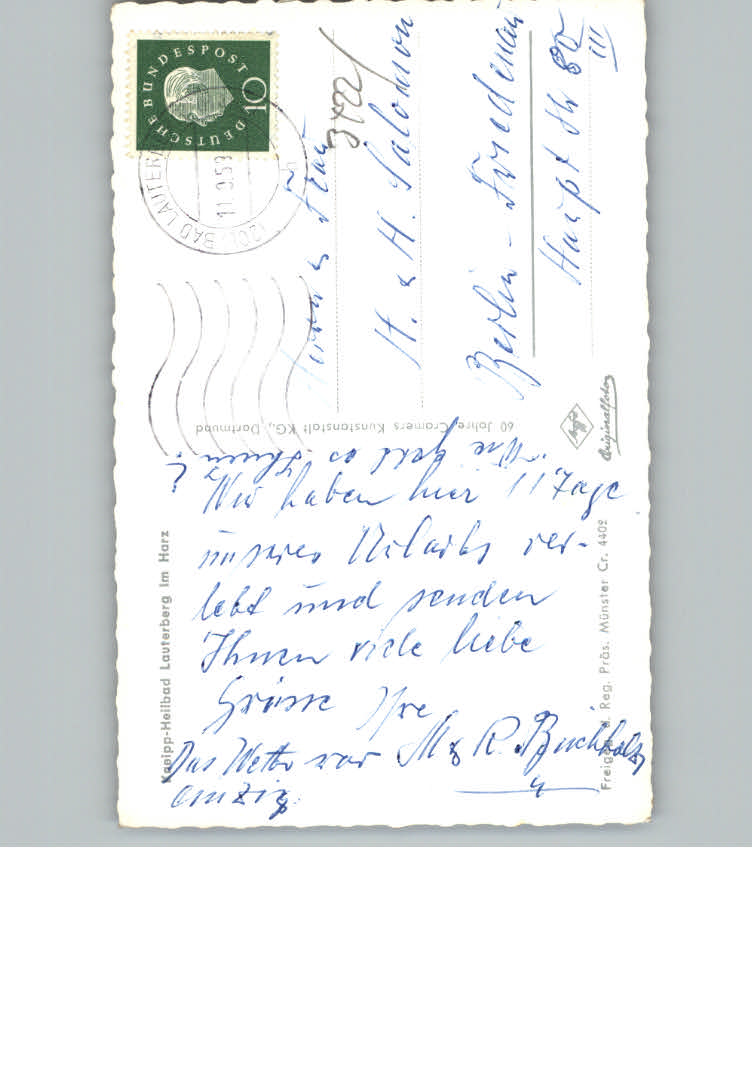 DEUTSCHE BUNDESPOST
10
(20b) BAD LAUTERBERG
11.9.59
Frau
H. u. H. Salomon
Berlin - Friedenau
Haupt str 80
III
60 Jahre, Cramers Kunstanstalt KG., Dortmund
Agfa
Originalfoto
Wie geht es Ihnen?
Wir haben hier 11 Tage
unseres Urlaubs ver-
lebt und senden
Ihnen viele liebe
Grüsse Ihre
M & R. Buchholz
Das Wetter war
einzig.
Kneipp-Heilbad Lauterberg im Harz
Freigeg. d. Reg. Präs. Münster Cr. 4402